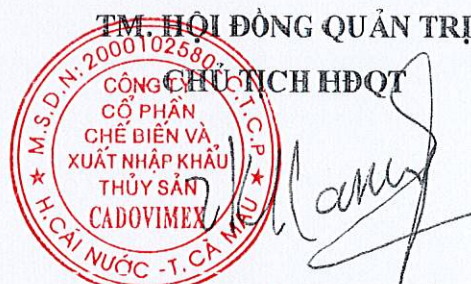 TM. HỘI ĐỒNG QUẢN TRỊ
CHỦ TỊCH HĐQT
M.S.D.N: 2000102580 - C.T.C.P
CÔNG TY
CỔ PHẦN
CHẾ BIẾN VÀ
XUẤT NHẬP KHẨU
THỦY SẢN
CADOVIMEX
H.CÁI NƯỚC - T.CÀ MAU